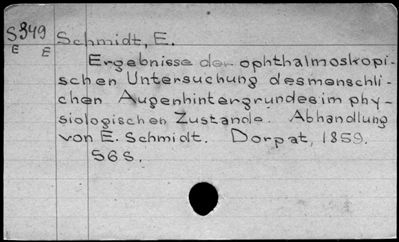 S349
E E
Schmidt, E.
Ergebnisse der ophthalmoskopi-
schen Untersuchung des menschli-
chen Augenhintergrundes im phy-
siologischen Zustande. Abhandlung
von E. Schmidt. Dorpat, 1859.
56S.